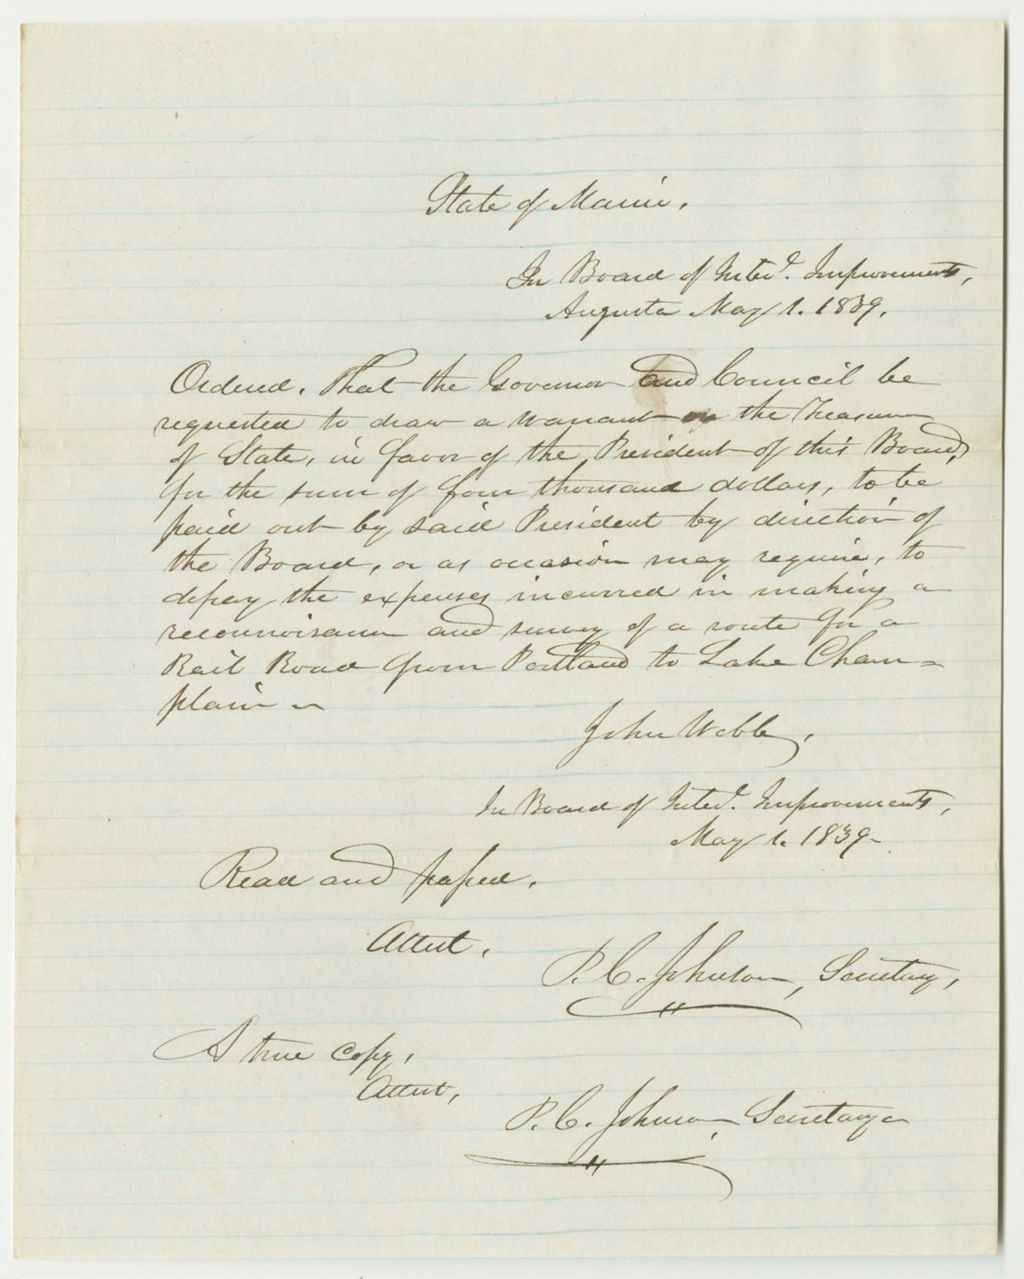 State of Maine.
In Board of Inter'l. Improvements,
Augusta May 1. 1839.
Ordered, That the Governor and Council be
requested to draw a warrant on the Treasurer
of State, in favor of the President of this Board,
for the sum of four thousand dollars, to be
paid out by said President by direction of
the Board, or as occasion may require, to
defray the expenses incurred in making a
reconnoisance and survey of a route for a
Rail Road from Portland to Lake Cham=
plain
John Webb,
In Board of Inter'l. Improvements,
May 1. 1839
Read and passed.
Attest.
P. C. Johnson, Secretary,
A true copy,
Attest,
P. C. Johnson, Secretary